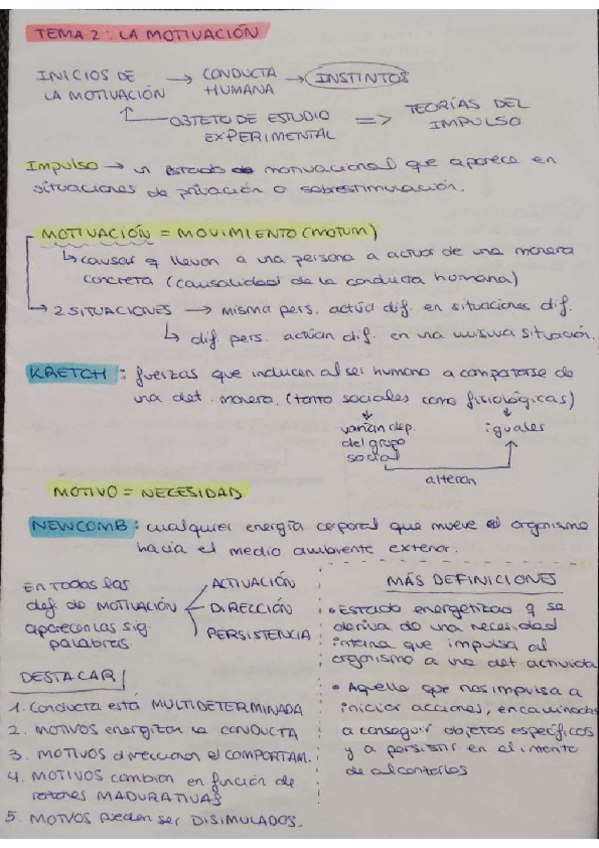 TEMA 2: LA MOTIVACIÓN
INICIOS DE LA MOTIVACIÓN → CONDUCTA HUMANA → INSTINTOS
OBJETO DE ESTUDIO EXPERIMENTAL => TEORÍAS DEL IMPULSO
Impulso → un estado motivacional que aparece en
situaciones de privación o sobrestimulación.
MOTIVACIÓN = MOVIMIENTO (MOTUM)
↳ causas q llevan a una persona a actuar de una manera
concreta (causalidad de la conducta humana)
→ 2 SITUACIONES → misma pers. actúa dif. en situaciones dif.
↳ dif. pers. actúan dif. en una misma situación.
KRETCH: fuerzas que inducen al ser humano a comportarse de
una det. manera. (tanto sociales como fisiológicas)
varían dep.
del grupo
social
iguales
alteran
MOTIVO = NECESIDAD
NEWCOMB: cualquier energía corporal que mueve el organismo
hacia el medio ambiente exterior.
EN TODAS las
def. de MOTIVACIÓN
aparecen las sig.
palabras.
ACTIVACIÓN
DIRECCIÓN
PERSISTENCIA
DESTACAR/
1. Conducta está MULTIDETERMINADA
2. MOTIVOS energizan la CONDUCTA
3. MOTIVOS direccionan el COMPORTAM.
4. MOTIVOS cambian en función de
razones MADURATIVAS
5. MOTIVOS pueden ser DISIMULADOS.
MÁS DEFINICIONES
• Estado energetizao q se
deriva de una necesidad
interna que impulsa al
organismo a una det. activida
• Aquello que nos impulsa a
iniciar acciones, encaminadas
a conseguir objetos específicos
y a persistir en el intento
de alcanzarlos